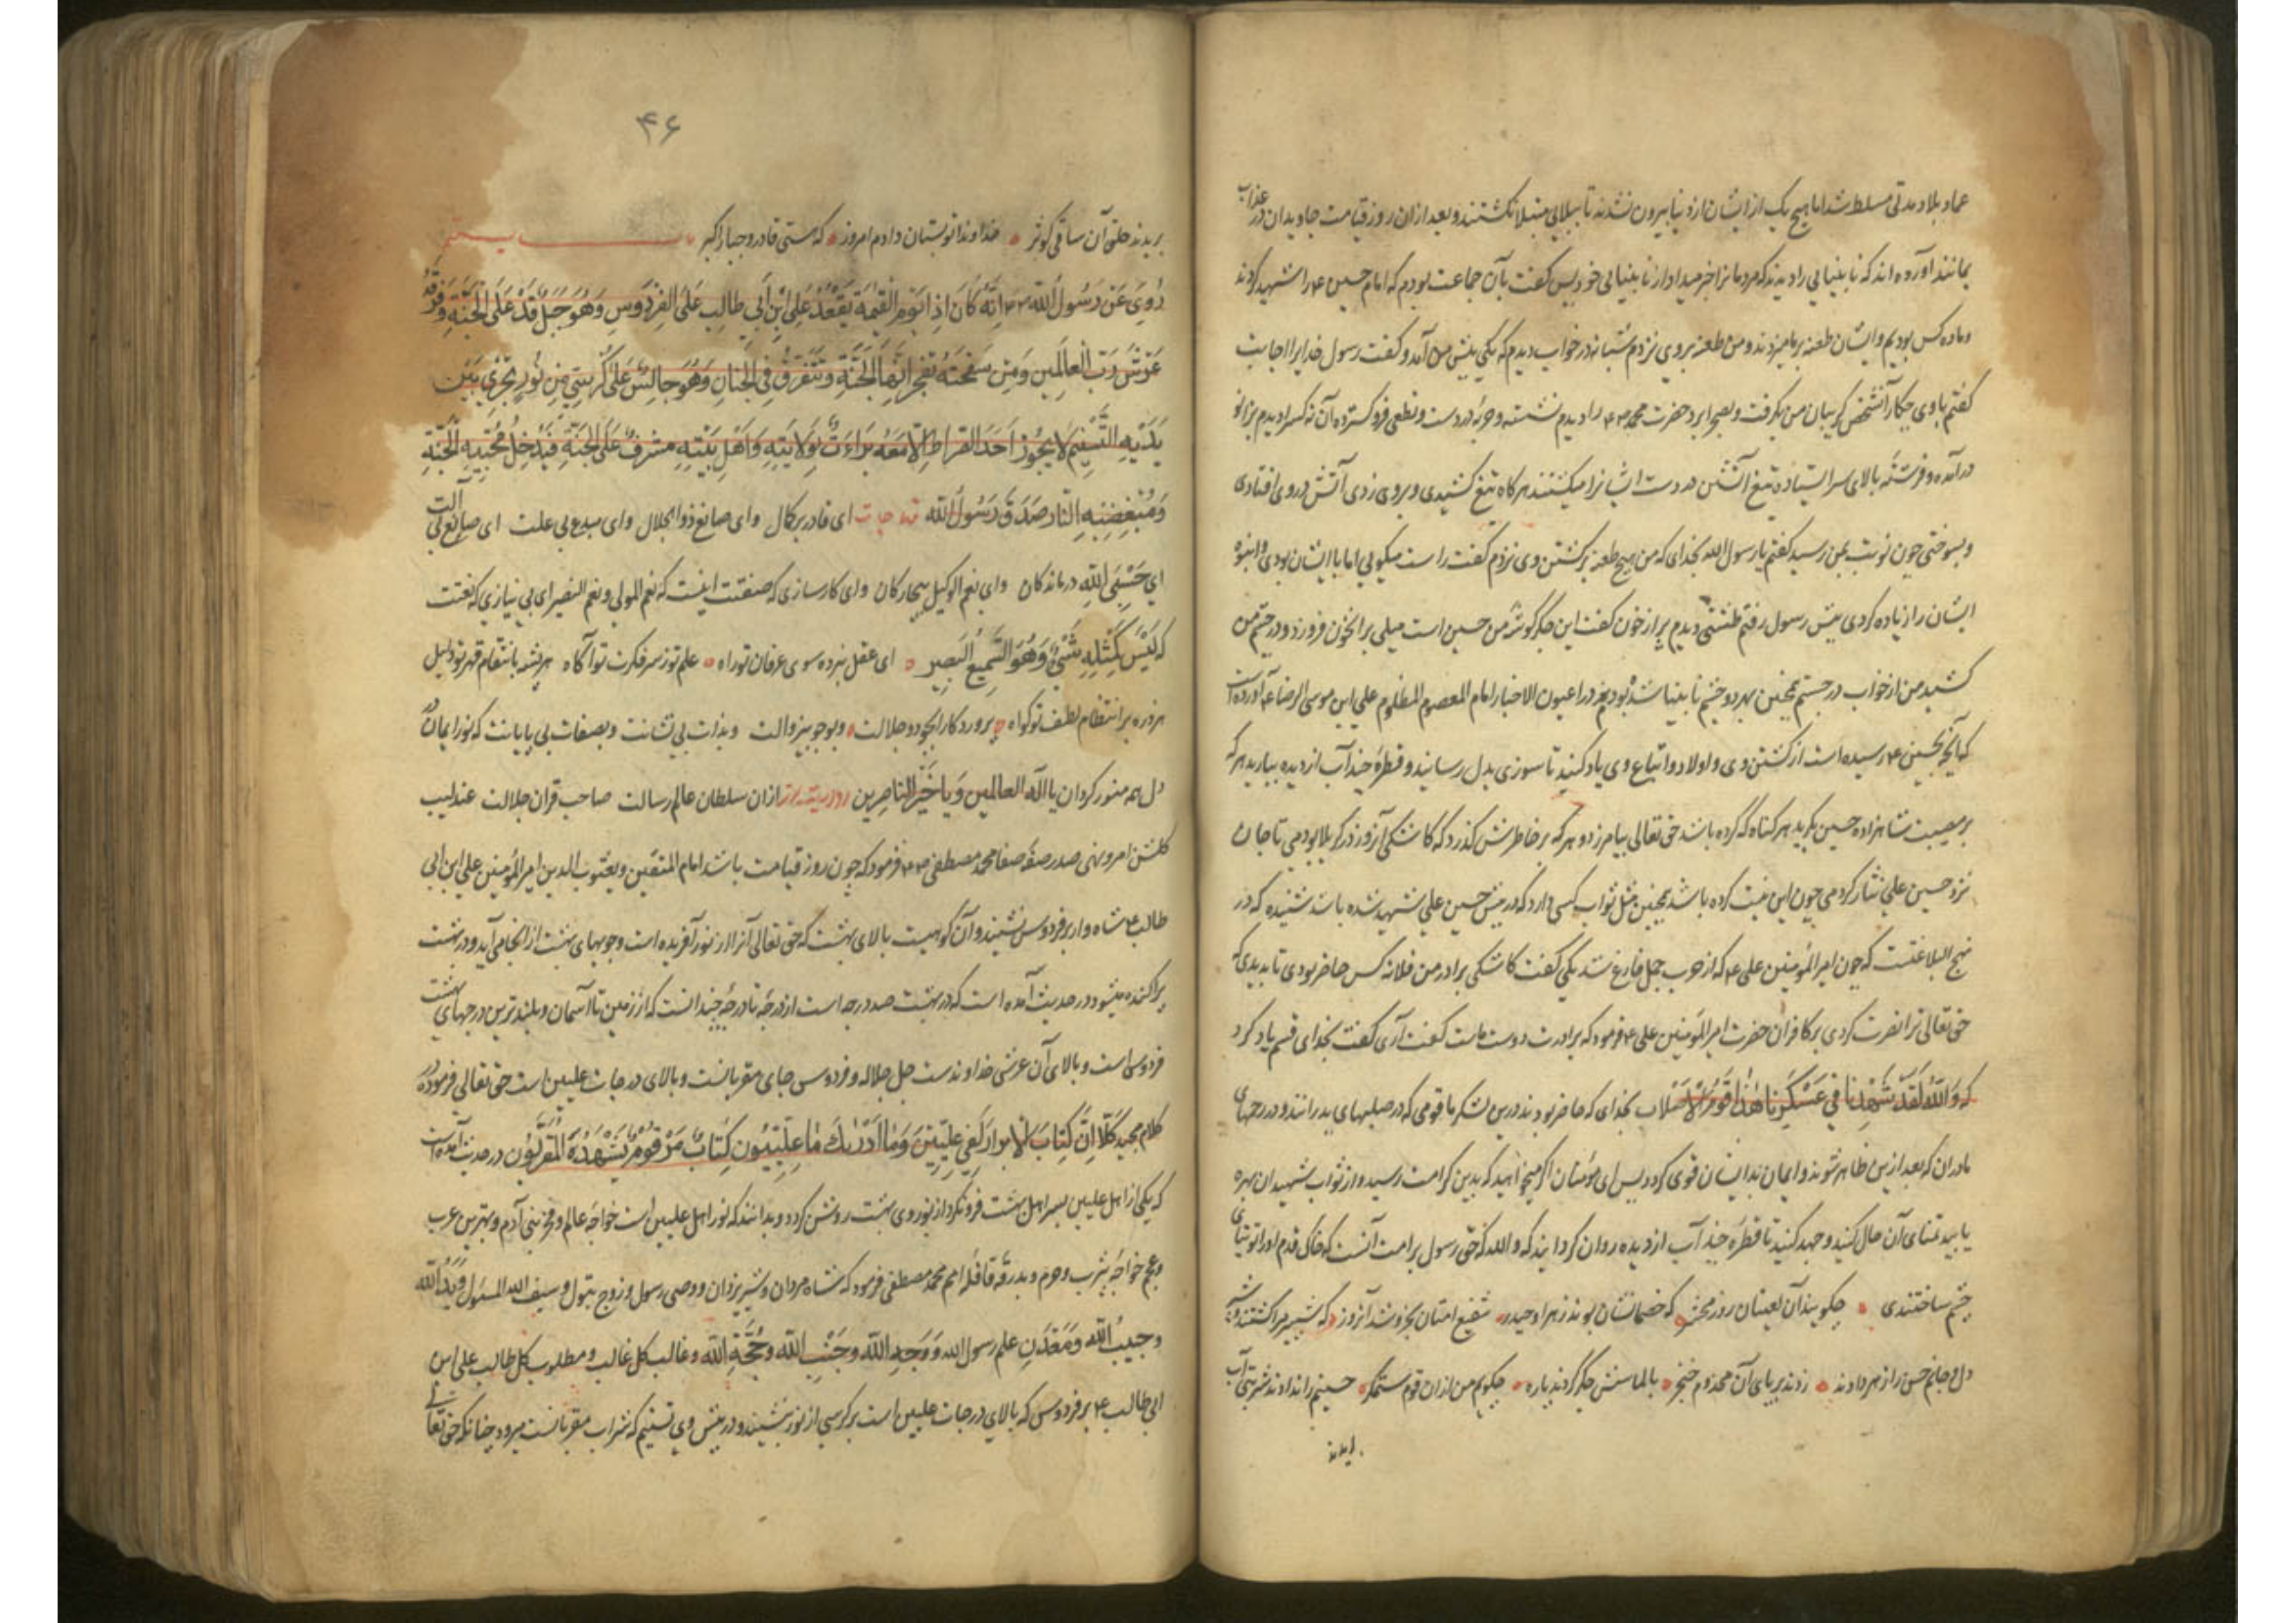 عماد بلا و مدتی مسلط شد اما هیچ یک از ایشان از دنیا بیرون نشدند تا ببلایی مبتلا نکشتند و بعد از ان روز قیامت جاویدان در عذاب
بمانند آورده اند که نابینایی را دیدند که مردمانرا خبر میداد از نابینایی خود پس گفت بآن جماعت بودم که امام حسین ع را شهید کردند
و ما ده کس بودیم و ایشان طعنه بر ما میزدند و من طعنه بر وی نزدم شبانه در خواب دیدم که یکی پیش من آمد و گفت رسول خدایرا اجابت
گفتم با وی چکار آنشخص گریبان من بگرفت و بصحرا برد حضرت محمد را دیدم نشسته و حربه در دست و نطعی فرو گسترده آن نه کس را دیدم بزانو
در آمده و فرشته بالای سر ایستاده تیغ آتشین در دست ایشانرا میکشتند هر کاه تیغ کشیدی و بر وی زدی آتش در وی افتادی
و بسوختی چون نوبت بمن رسید گفتم یا رسول الله بخدای که من هیچ طعنه بر کشتن وی نزدم گفت راست میکویی اما با ایشان بودی و انبوه
ایشان را زیاده کردی پیش رسول رفتم طشتی دیدم پر از خون گفت این جگر گوشه من حسین است میلی بر آنخون فرو زد و در چشم من
کشید من از خواب در جستم همچنین بهر دو چشم نابینا شده بودم در عیون الاخبار امام المعصوم المظلوم علی ابن موسی الرضا ع آورده است
که آنچه بحسین ع رسیده است از کشتن وی و اولاد و اتباع وی یاد کنید تا سوزی بدل رسانید و قطرهٔ چند آب از دیده ببارید هر که
بر مصیبت شاهزاده حسین بگرید هر کناه که کرده باشد حق تعالی بیامرزد و هر که بر خاطرش گذرد که کاشکی آنروز در کربلا بودمی تا جان
نزد حسین علی نثار کردمی چون این نیت کرده باشد همچنین مثل ثواب کسی دارد که در پیش حسین علی شهید شده باشد شنیده که در
نهج البلاغتست که چون امیر المؤمنین علی ع که از حرب جمل فارغ شد یکی گفت کاشکی برادر من فلانه کس حاضر بودی تا بدیدی که
حق تعالی ترا نصرت کردی بر کافران حضرت امیر المؤمنین علی ع فرمود که برادرت دوست ماست گفت آری گفت بخدای قسم یاد کرد
که وَاللَّهِ لَقَدْ شَهِدَنَا فِي عَسْكَرِنَا هٰذَا قَوْمٌ الاَصْلاب بخدای که حاضر بودند درین لشکر ما قومی که در صلبهای پدرانند و در رحمهای
مادران که بعد ازین ظاهر شوند و ایمان بدانیشان قوی کردد پس ای مؤمنان اگر میخواهید که بدین کرامت رسید و از ثواب شهیدان بهره
یابید تمنای آن حال کنید و جهد کنید تا قطرهٔ چند آب از دیده روان کردانید که والله که حق رسول بر امت آنست که خاک قدم او را توتیای
چشم ساختندی چکویند آن لعینان روز محشر که خصمانشان بوند زهرا و حیدر شفیع امتان بخروشد آنروز که شبیرم را کشتند و شبر
دل و جانم حسن را زهر دادند زدند بر پای آن مخدوم خنجر بالماسش جگر کردند پاره چکویم من از ان قوم ستمگر حسینم را ندادند شربتی آب
بریدند
۴۶
بریدند حلق آن ساقی کوثر خداوندا تو بستان دادم امروز که هستی قادر و جبار اکبر
رُوِيَ عَن رَسُولِ اللَّه اِنَّهُ كَانَ اِذَا يَوْمَ القِيٰمَةِ يَقْعُدُ عَلِيِّ ابْنِ اَبِي طالِبٍ عَلَى الفِرْدَوسِ وَهُوَ جَبَلٌ قَدْ عَلَى الجَنَّةِ وَفَوْقَهُ
عَرْشُ رَبِّ العَالَمِينَ وَمِنْ سَفْحَتِهِ تَفَجَّرُ اَنْهَارُ الجَنَّةِ وَتَتَفَرَّقُ فِي الجَنانِ وَهُوَ جَالِسٌ عَلَى كُرْسِيٍّ مِن نُورٍ يَجْرِي بَيْنَ
يَدَيْهِ التَّسْنِيمُ لَا يَجُوزُ اَحَدٌ الصِّراطَ اِلَّا مَعَهُ بَرَاءَةٌ بِوَلَايَتِهِ وَاَهْلِ بَيْتِهِ مُشْرِفٌ عَلَى الجَنَّةِ فَيُدْخِلُ مُحِبِّيهِ الجَنَّةَ
وَمُبْغِضِيهِ النَّارَ صَدَقَ رَسُولُ اللّه مناجات ای قادر بر کمال وای صانع ذو الجلال وای مبدع بی علت ای صانع بی آلت
ای حَسْبِيَ الله درماندکان وای نعم الوکیل بیچارکان وای کارسازی که صفتت اینست که نعم المولی و نعم النصیر ای بی نیازی که نعتت
که لَيْسَ كَمِثْلِهِ شَيْءٌ وَهُوَ السَّمِيعُ البَصِير ای عقل نبرده سوی عرفان تو راه علم تو ز سر فکرت تو آگاه هر پشه بانتقام قهر تو دلیل
هر ذره بر انتظام لطف تو کواه پروردکارا بجود و جلالت و بوجوب بیزوالت و بذات بی نشانت و بصفات بی پایانت که نور ایمان در
دل همه منور کردان یا اله العالمین وَيَا خَيْرَ النَّاصِرِين روایتست از ان سلطان عالم رسالت صاحب قران جلالت عندلیب
گلشن امر و نهی صدر صفهٔ صفا محمد مصطفی فرمود که چون روز قیامت باشد امام المتقین و یعسوب الدین امیر المؤمنین علی ابن ابی
طالب ع شاه وار بر فردوس نشیند و آن کوهیست بالای بهشت که حق تعالی آنرا از نور آفریده است و جویهای بهشت از انجا می آید و در بهشت
پراکنده میشود در حدیث آمده است که در بهشت صد درجه است از درجهٔ تا درجهٔ چندانست که از زمین تا آسمان و بلندترین درجهای بهشت
فردوس است و بالای آن عرش خداوندست جل جلاله و فردوس جای مقربانست و بالای درجات علیین است حق تعالی فرموده در
کلام مجید كَلَّا اِنَّ كِتَابَ الاَبرارِ لَفِي عِلِّيِّينَ وَمَا اَدْرٰيكَ مٰا عِلِّيُّونَ كِتَابٌ مَرْقُومٌ يَشْهَدُهُ الْمُقَرَّبُونَ در حدیث آمده است
که یکی از اهل علیین بسر اهل بهشت فرو نگرد از نور وی بهشت روشن کردد و بدانند که نور اهل علیین است خواجهٔ عالم و فخر بنی آدم و بهترین عرب
و عجم خواجهٔ یثرب و حرم و بدرقهٔ قافلهٔ امم محمد مصطفی فرمود که شاه مردان و شیر یزدان و وصی رسول و زوج بتول و سیف الله المسلول وَيَدُ اللّه
و حبیبُ اللّه وَمَعْدَنِ علم رسول الله وَوَجهِ اللّه وجَنْبِ اللّه وحُجَّةِ اللّه و غالب کل غالب و مطلوب کل طالب علی ابن
ابی طالب ع بر فردوس که بالای درجات علیین است بر کرسی از نور نشیند و در پیش وی تسنیم که شراب مقربانست میرود چنانکه حق تعالی